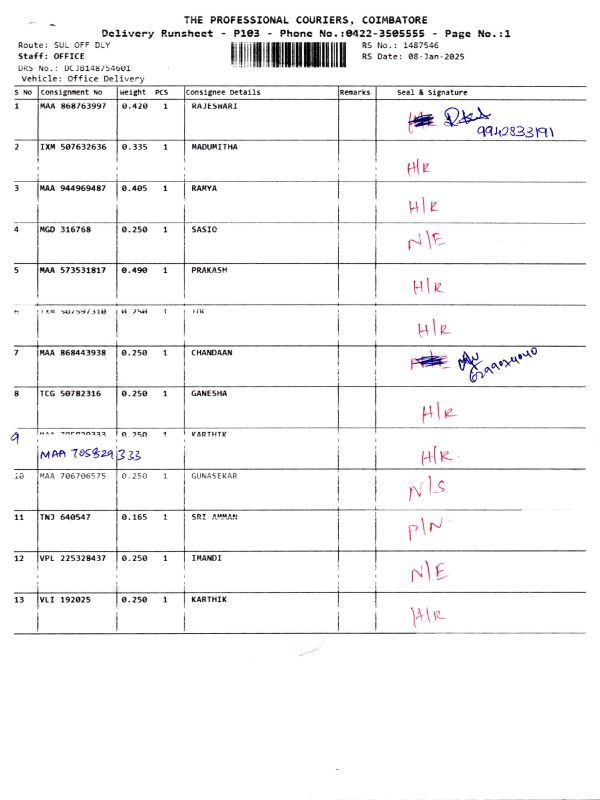 THE PROFESSIONAL COURIERS, COIMBATORE
Delivery Runsheet - P103 - Phone No.:0422-3505555 - Page No.:1
Route: SUL OFF DLY RS No.: 1487546
Staff: OFFICE RS Date: 08-Jan-2025
DRS No.: DCJB148754601
Vehicle: Office Delivery
S No Consignment No Weight PCS Consignee Details Remarks Seal & Signature
1 MAA 868763997 0.420 1 RAJESWARI
9942833191
2 IXM 507632636 0.335 1 MADUMITHA
H/R
3 MAA 944969487 0.405 1 RAMYA
H/R
4 MGD 316768 0.250 1 SASIO
N/E
5 MAA 573531817 0.490 1 PRAKASH
H/R
6 IXM 507597310 0.250 1
H/R
7 MAA 868443938 0.250 1 CHANDAAN
8 TCG 50782316 0.250 1 GANESHA
H/R
9 MAA 705829333 0.250 1 KARTHIK
MAA 705829333 H/R.
10 MAA 706706575 0.250 1 GUNASEKAR
N/S
11 TNJ 640547 0.165 1 SRI AMMAN
P/N
12 VPL 225328437 0.250 1 IMANDI
N/E
13 VLI 192025 0.250 1 KARTHIK
H/R